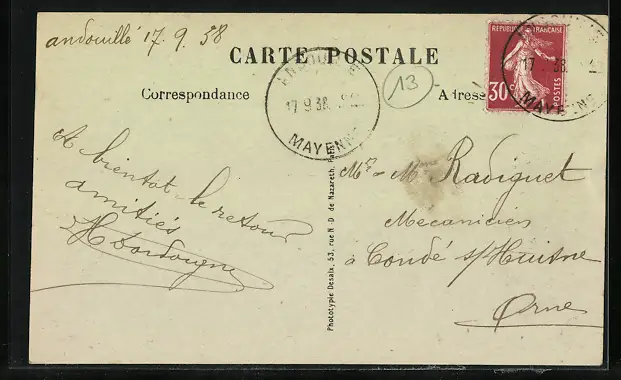 andouillé 17.9.38
CARTE POSTALE
Correspondance
Adresse
ANDOUILLÉ
17 9 38
MAYENNE
13
REPUBLIQUE FRANÇAISE
30c
POSTES
17 38
MAYENNE
A bientot le retour
amitiés
Mr - Mme Radiguet
Mecanicien
à Condé s/Huisne
Orne
Phototypie Desaix, 53, rue N.-D. de Nazareth, Paris